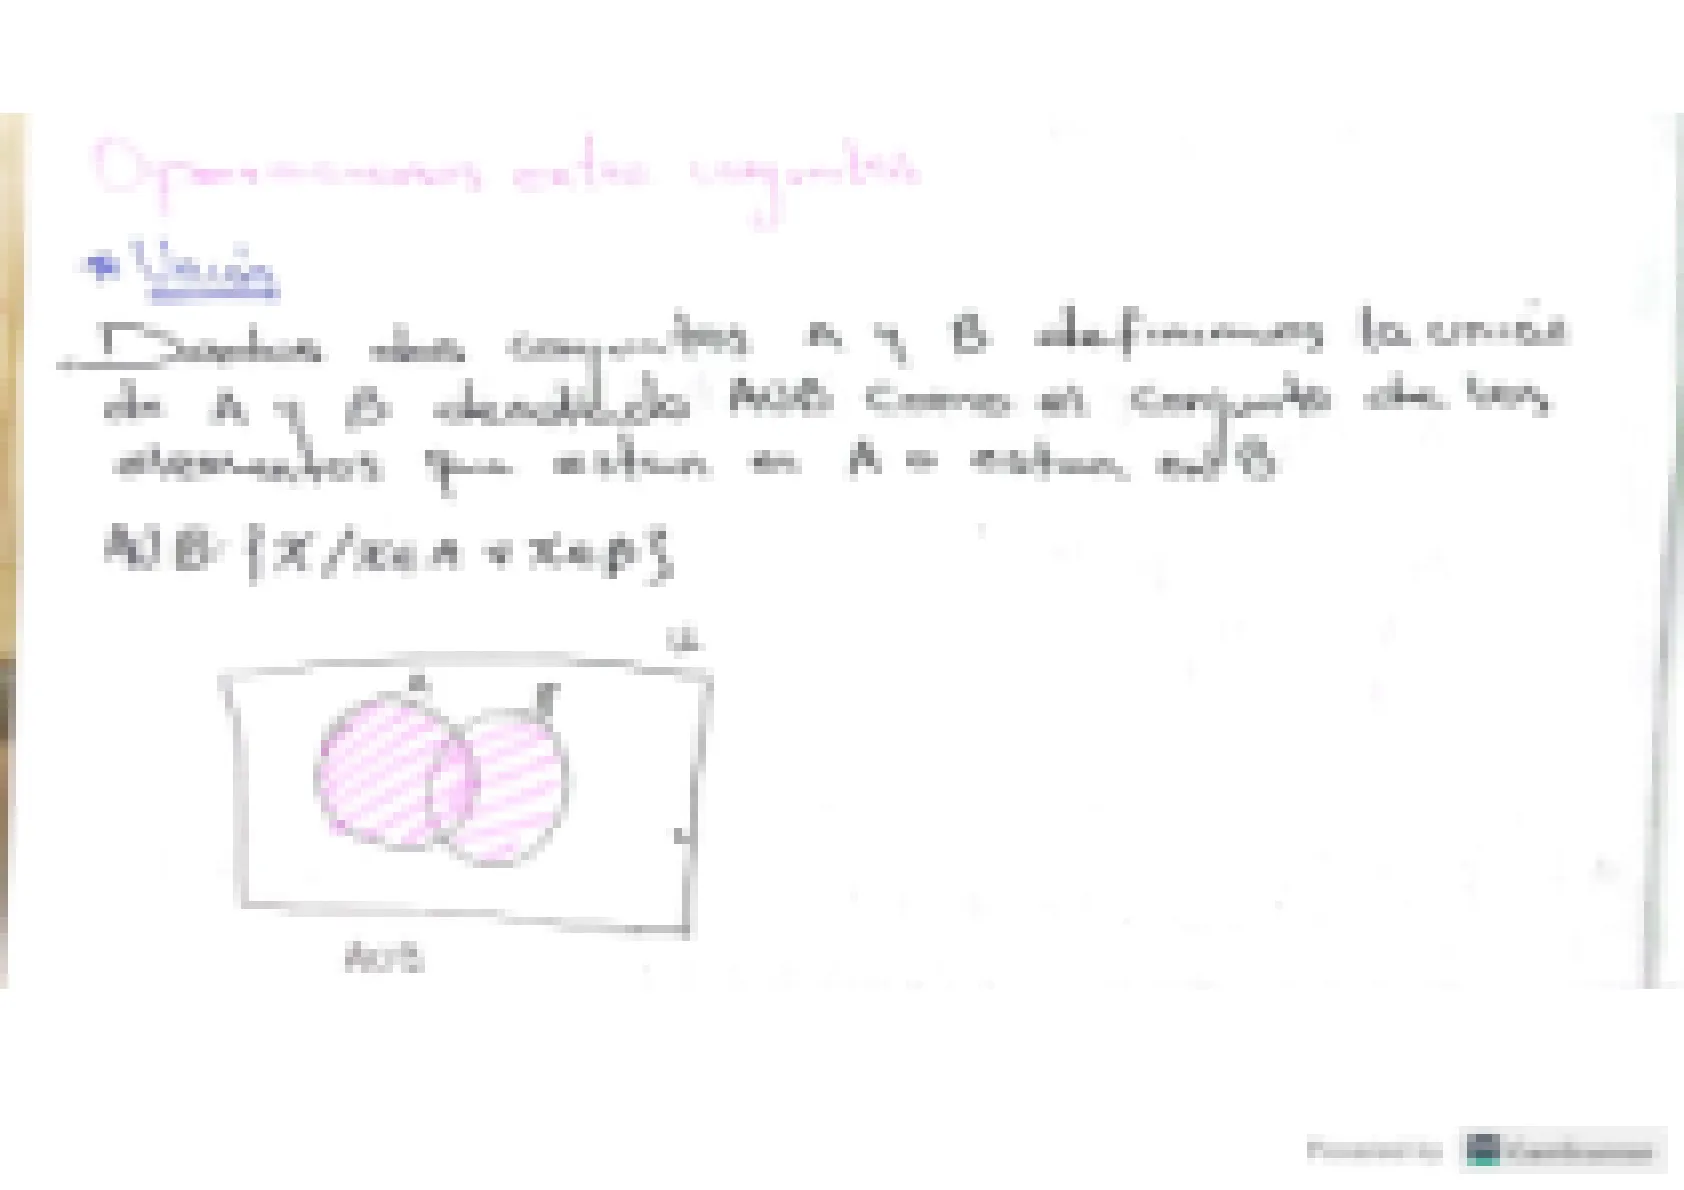 Operaciones entre conjuntos
* Unión
Dados dos conjuntos A y B definimos la unión
de A y B denotado AUB como el conjunto de los
elementos que estan en A o estan en B
AUB {X/X∈A v X∈B}
U
A B
AUB
Powered by CamScanner